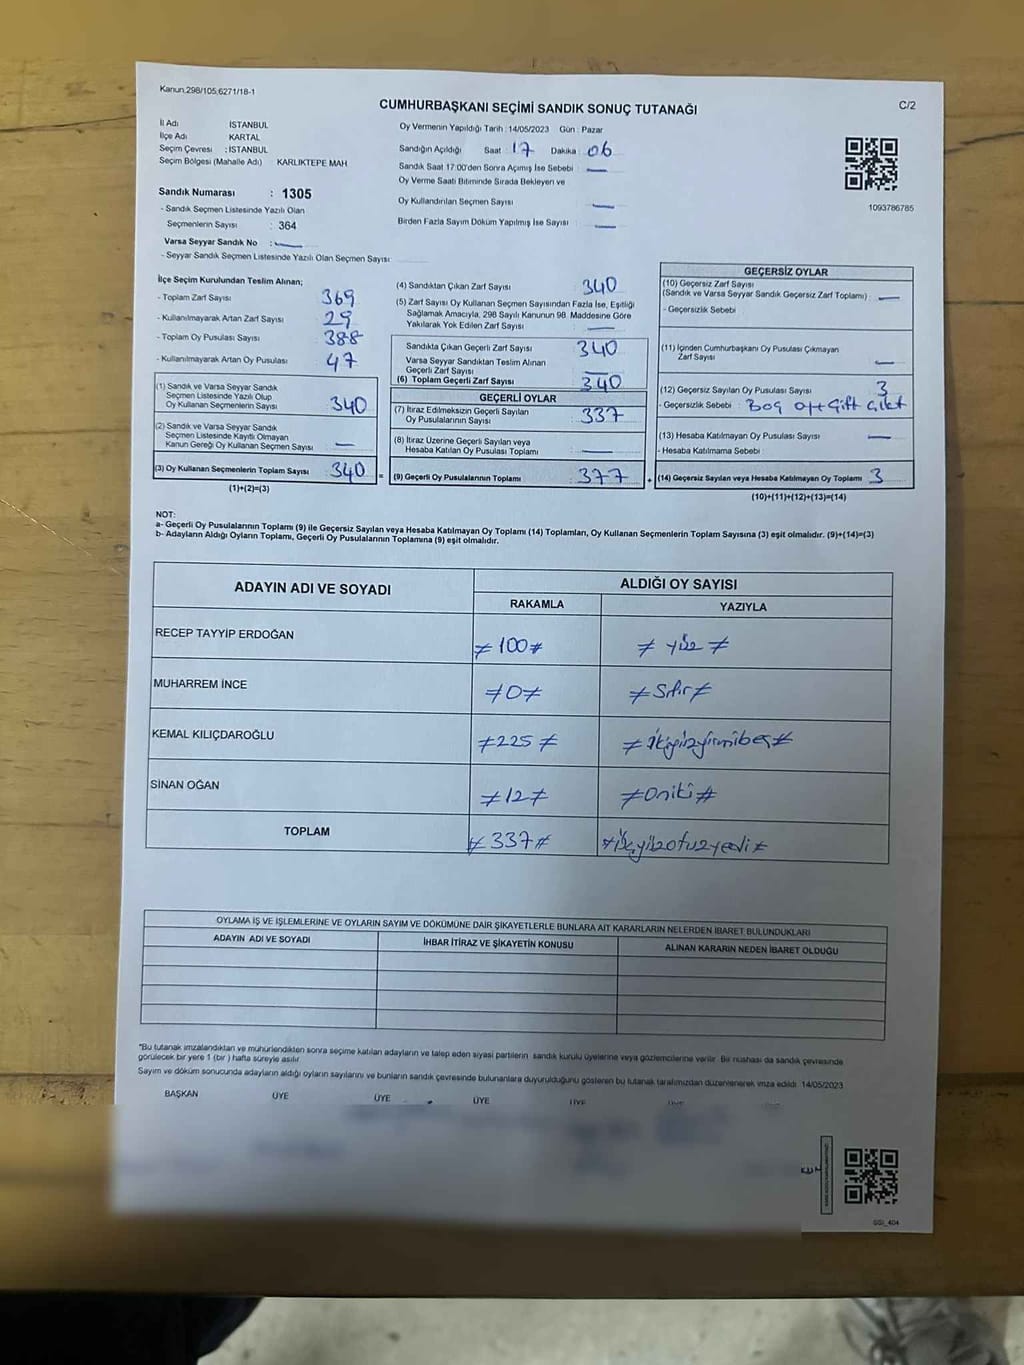 Kanun.298/105,6271/18-1
CUMHURBAŞKANI SEÇİMİ SANDIK SONUÇ TUTANAĞI
C/2
İl Adı İSTANBUL
İlçe Adı KARTAL
Seçim Çevresi : İSTANBUL
Seçim Bölgesi (Mahalle Adı) KARLIKTEPE MAH
Sandık Numarası : 1305
- Sandık Seçmen Listesinde Yazılı Olan
Seçmenlerin Sayısı : 364
Varsa Seyyar Sandık No : —
- Seyyar Sandık Seçmen Listesinde Yazılı Olan Seçmen Sayısı:
Oy Vermenin Yapıldığı Tarih : 14/05/2023 Gün : Pazar
Sandığın Açıldığı Saat : 17 Dakika : 06
Sandık Saat 17:00'den Sonra Açılmış İse Sebebi : —
Oy Verme Saati Bitiminde Sırada Bekleyen ve
Oy Kullandırılan Seçmen Sayısı : —
Birden Fazla Sayım Döküm Yapılmış İse Sayısı : —
1093786785
İlçe Seçim Kurulundan Teslim Alınan;
- Toplam Zarf Sayısı : 369
- Kullanılmayarak Artan Zarf Sayısı : 29
- Toplam Oy Pusulası Sayısı : 388
- Kullanılmayarak Artan Oy Pusulası : 47
(1) Sandık ve Varsa Seyyar Sandık
Seçmen Listesinde Yazılı Olup
Oy Kullanan Seçmenlerin Sayısı : 340
(2) Sandık ve Varsa Seyyar Sandık
Seçmen Listesinde Kayıtlı Olmayan
Kanun Gereği Oy Kullanan Seçmen Sayısı : —
(3) Oy Kullanan Seçmenlerin Toplam Sayısı : 340
(1)+(2)=(3)
(4) Sandıktan Çıkan Zarf Sayısı : 340
(5) Zarf Sayısı Oy Kullanan Seçmen Sayısından Fazla İse, Eşitliği
Sağlamak Amacıyla, 298 Sayılı Kanunun 98. Maddesine Göre
Yakılarak Yok Edilen Zarf Sayısı : —
Sandıkta Çıkan Geçerli Zarf Sayısı : 340
Varsa Seyyar Sandıktan Teslim Alınan
Geçerli Zarf Sayısı : —
(6) Toplam Geçerli Zarf Sayısı : 340
GEÇERLİ OYLAR
(7) İtiraz Edilmeksizin Geçerli Sayılan
Oy Pusulalarının Sayısı : 337
(8) İtiraz Üzerine Geçerli Sayılan veya
Hesaba Katılan Oy Pusulası Toplamı : —
= (9) Geçerli Oy Pusulalarının Toplamı : 377
GEÇERSİZ OYLAR
(10) Geçersiz Zarf Sayısı
(Sandık ve Varsa Seyyar Sandık Geçersiz Zarf Toplamı) : —
- Geçersizlik Sebebi :
(11) İçinden Cumhurbaşkanı Oy Pusulası Çıkmayan
Zarf Sayısı : —
(12) Geçersiz Sayılan Oy Pusulası Sayısı : 3
- Geçersizlik Sebebi : Boş
(13) Hesaba Katılmayan Oy Pusulası Sayısı : —
- Hesaba Katılmama Sebebi :
+ (14) Geçersiz Sayılan veya Hesaba Katılmayan Oy Toplamı : 3
(10)+(11)+(12)+(13)=(14)
NOT:
a- Geçerli Oy Pusulalarının Toplamı (9) ile Geçersiz Sayılan veya Hesaba Katılmayan Oy Toplamı (14) Toplamları, Oy Kullanan Seçmenlerin Toplam Sayısına (3) eşit olmalıdır. (9)+(14)=(3)
b- Adayların Aldığı Oyların Toplamı, Geçerli Oy Pusulalarının Toplamına (9) eşit olmalıdır.
ADAYIN ADI VE SOYADI ALDIĞI OY SAYISI
RAKAMLA YAZIYLA
RECEP TAYYİP ERDOĞAN ≠100≠ ≠ yüz ≠
MUHARREM İNCE ≠0≠ ≠Sıfır≠
KEMAL KILIÇDAROĞLU ≠225≠ ≠ikiyüzyirmibeş≠
SİNAN OĞAN ≠12≠ ≠Oniki≠
TOPLAM ≠337≠ ≠üçyüzotuzyedi≠
OYLAMA İŞ VE İŞLEMLERİNE VE OYLARIN SAYIM VE DÖKÜMÜNE DAİR ŞİKAYETLERLE BUNLARA AİT KARARLARIN NELERDEN İBARET BULUNDUKLARI
ADAYIN ADI VE SOYADI İHBAR İTİRAZ VE ŞİKAYETİN KONUSU ALINAN KARARIN NEDEN İBARET OLDUĞU
*Bu tutanak imzalandıktan ve mühürlendikten sonra seçime katılan adayların ve talep eden siyasi partilerin sandık kurulu üyelerine veya gözlemcilerine verilir. Bir nüshası da sandık çevresinde
görülecek bir yere 1 (bir ) hafta süreyle asılır.
Sayım ve döküm sonucunda adayların aldığı oyların sayılarını ve bunların sandık çevresinde bulunanlara duyurulduğunu gösteren bu tutanak tarafımızdan düzenlenerek imza edildi. 14/05/2023
BAŞKAN ÜYE ÜYE ÜYE ÜYE ÜYE
SSI_404